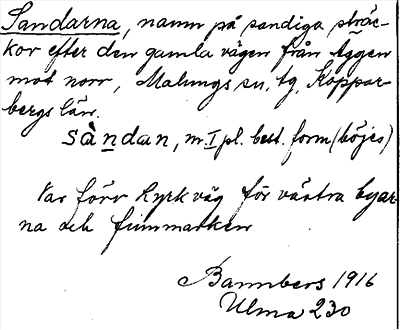 Sandarna, namn på sandiga sträc-
kor efter den gamla vägen från Äggen
mot norr, Malungs sn, Koppar-
bergs län.
sàndan, m. I pl. best. form (böjes)
Var förr kyrkväg för västra byar
na och finnmarken
Bannbers 1916
Ulma 230